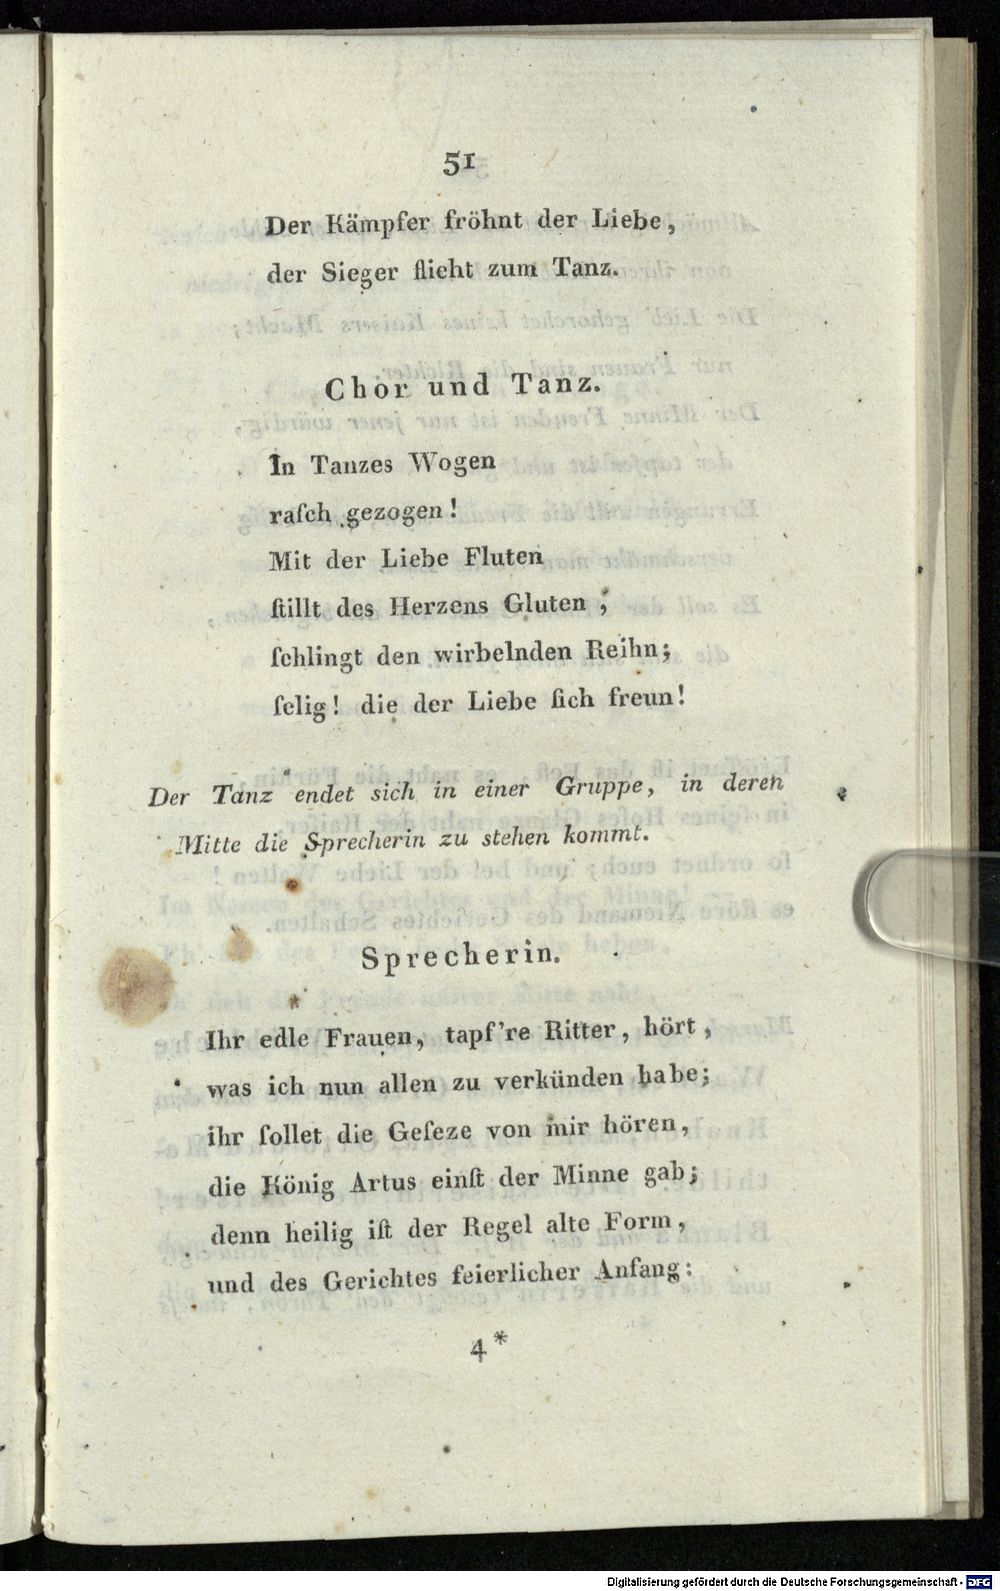 51
Der Kämpfer fröhnt der Liebe,
der Sieger flieht zum Tanz.
Chor und Tanz.
In Tanzes Wogen
raſch gezogen!
Mit der Liebe Fluten
ſtillt des Herzens Gluten;
ſchlingt den wirbelnden Reihn;
ſelig! die der Liebe ſich freun!
Der Tanz endet sich in einer Gruppe, in deren
Mitte die Sprecherin zu stehen kommt.
Sprecherin.
Ihr edle Frauen, tapf're Ritter, hört,
was ich nun allen zu verkünden habe;
ihr ſollet die Geſeze von mir hören,
die König Artus einſt der Minne gab;
denn heilig iſt der Regel alte Form,
und des Gerichtes feierlicher Anfang:
4*
Digitalisierung gefördert durch die Deutsche Forschungsgemeinschaft - DFG